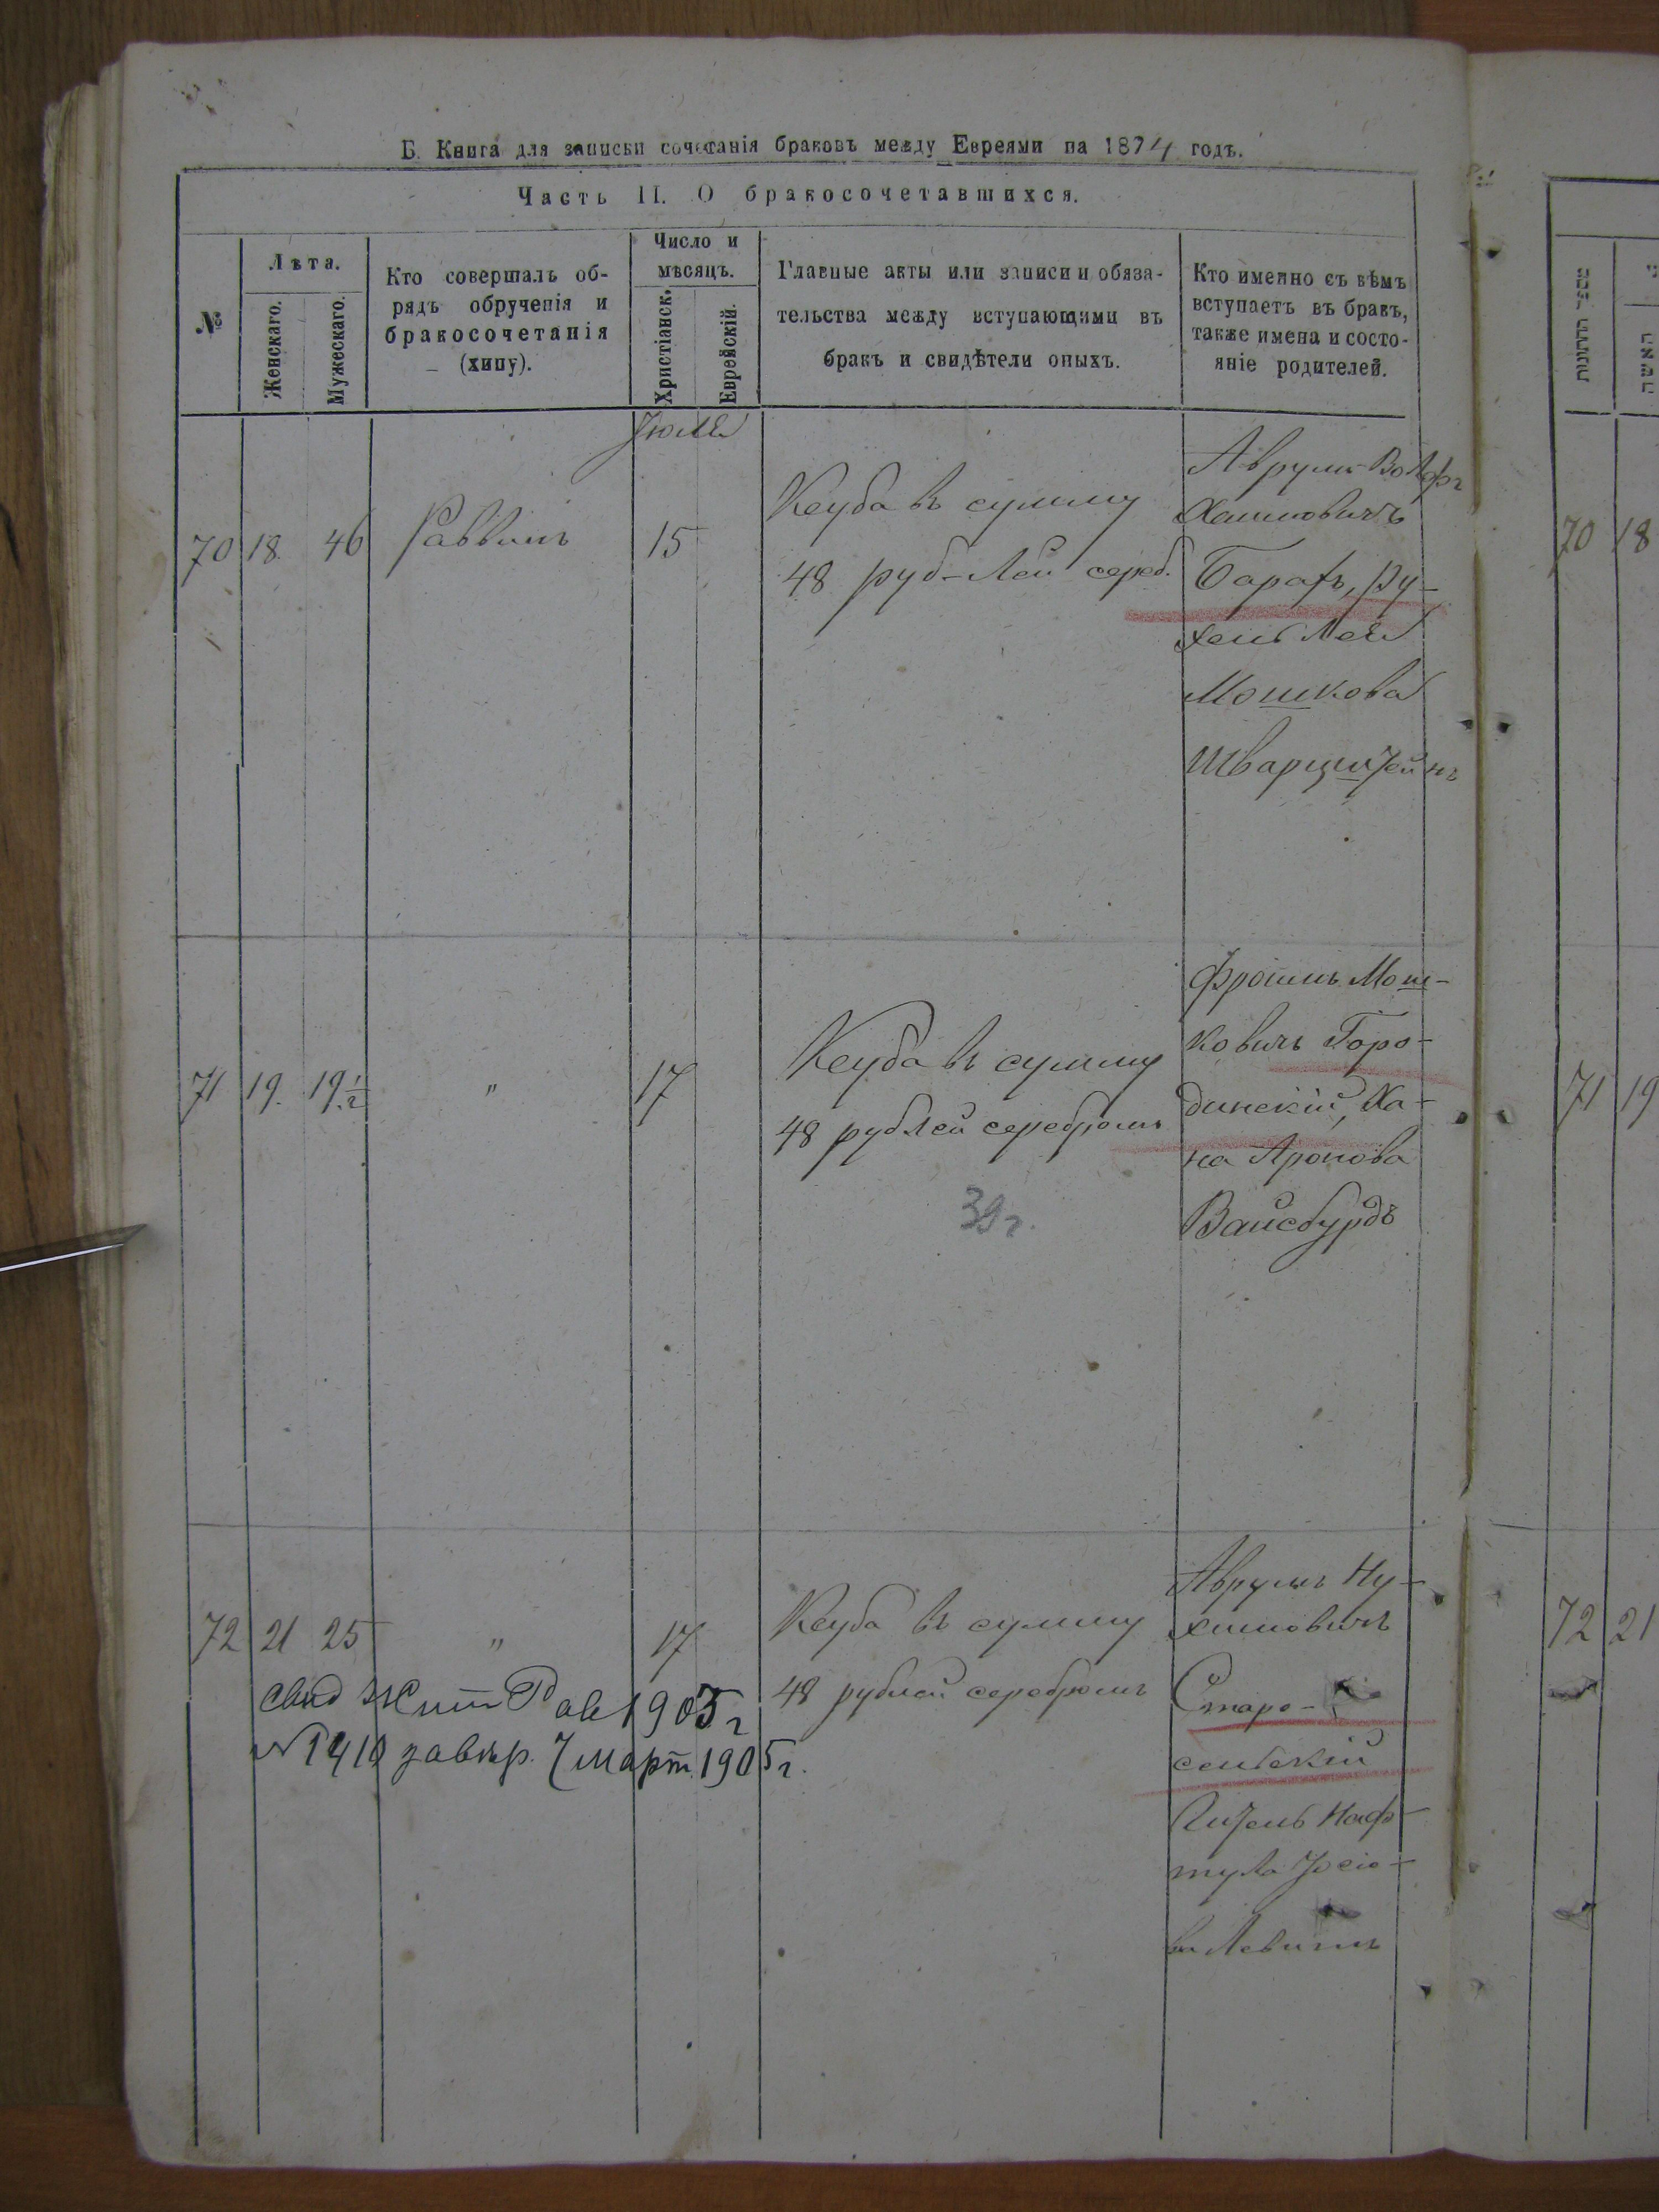 Б. Книга для записки сочетанія браковъ между Евреями на 1874 годъ.
Часть II. О бракосочетавшихся.
№
Лѣта.
Женскаго.
Мужескаго.
Кто совершалъ об-
рядъ обрученія и
бракосочетанія
(хипу).
Число и
мѣсяцъ.
Христіанск.
Еврейскій.
Главные акты или записи и обяза-
тельства между вступающими въ
бракъ и свидѣтели оныхъ.
Кто именно съ кѣмъ
вступаетъ въ бракъ,
также имена и состо-
яніе родителей.
Іюля
70 18 46 Раввинъ 15
Кеуба въ сумму
48 руб-лей сереб.
Аврумъ-Вольфъ
Хаимовичъ
Барахъ, Ру-
хель Лея
Мошкова
Шварцштейнъ
71 19. 19 1/2 " 17
Кеуба въ сумму
48 рублей серебромъ
39 г.
Фроимъ Мош-
ковичъ Горо-
динскій, Ха-
на Аронова
Вайсбурдъ
72 21 25 " 17
Кеуба въ сумму
48 рублей серебромъ
Аврумъ Ну-
химовичъ
Старо-
сельскій
Наф-
тула
Левинъ
Свид Жит Рав 1905 г
№ 1410 завѣр. 7 март. 1905 г.
מספר החתונות
האשה
70 18
71 19
72 21